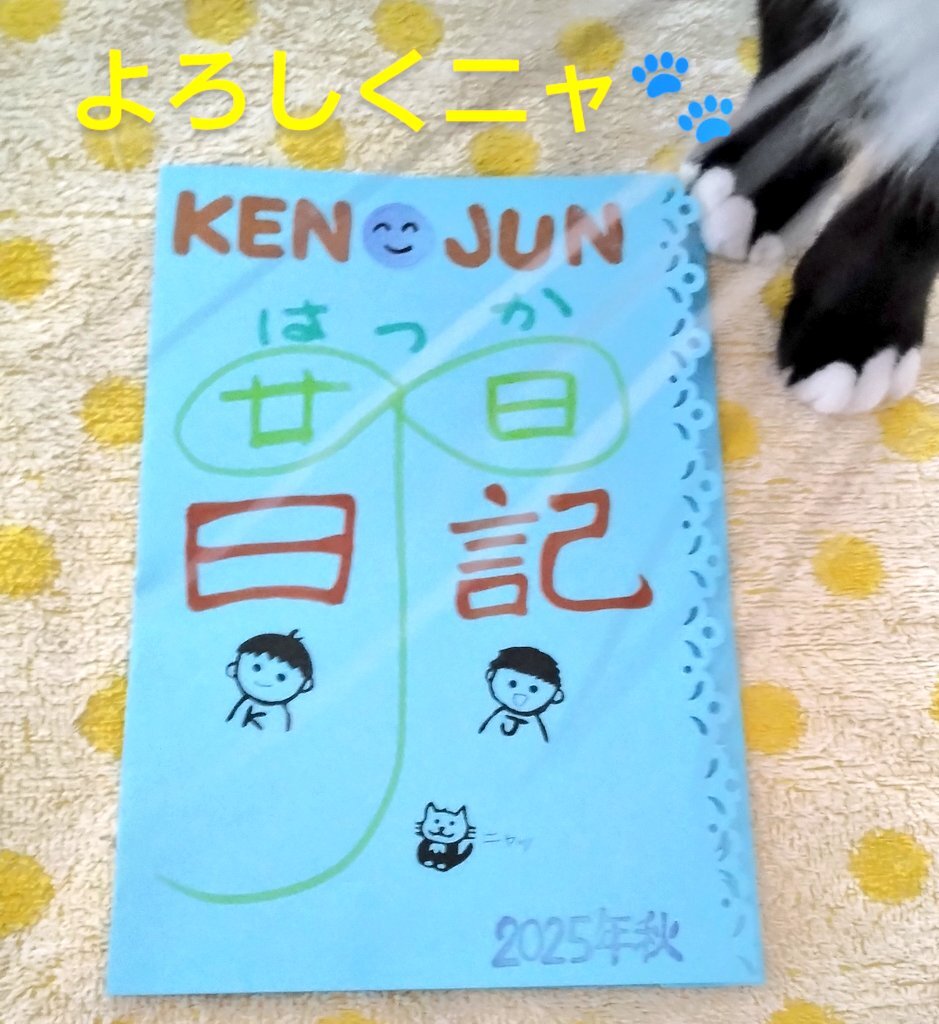 よろしくニャ🐾
KEN JUN
はつか
廿日
日記
K J
ニャッ
2025年秋